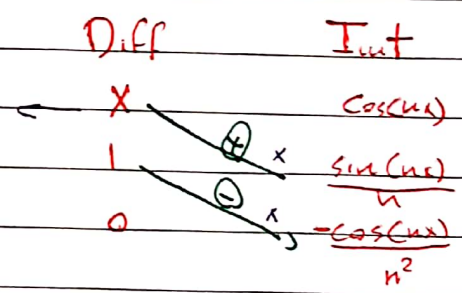 Diff Int
X cos(nx)
+ x
1 sin(nx)/n
- x
0 -cos(nx)/n²